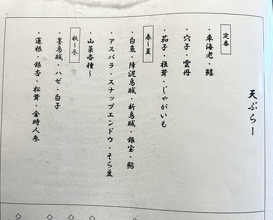 天ぷらー
定番
・車海老・鱚
・穴子・雲丹
・茄子・椎茸・じゃがいも
春〜夏
・白魚・障泥烏賊・新烏賊・銀宝・鮎
・アスパラ・スナップエンドウ・そら豆
・山菜各種〜
秋〜冬
・墨烏賊・ハゼ・白子
・蓮根・銀杏・松茸・金時人参